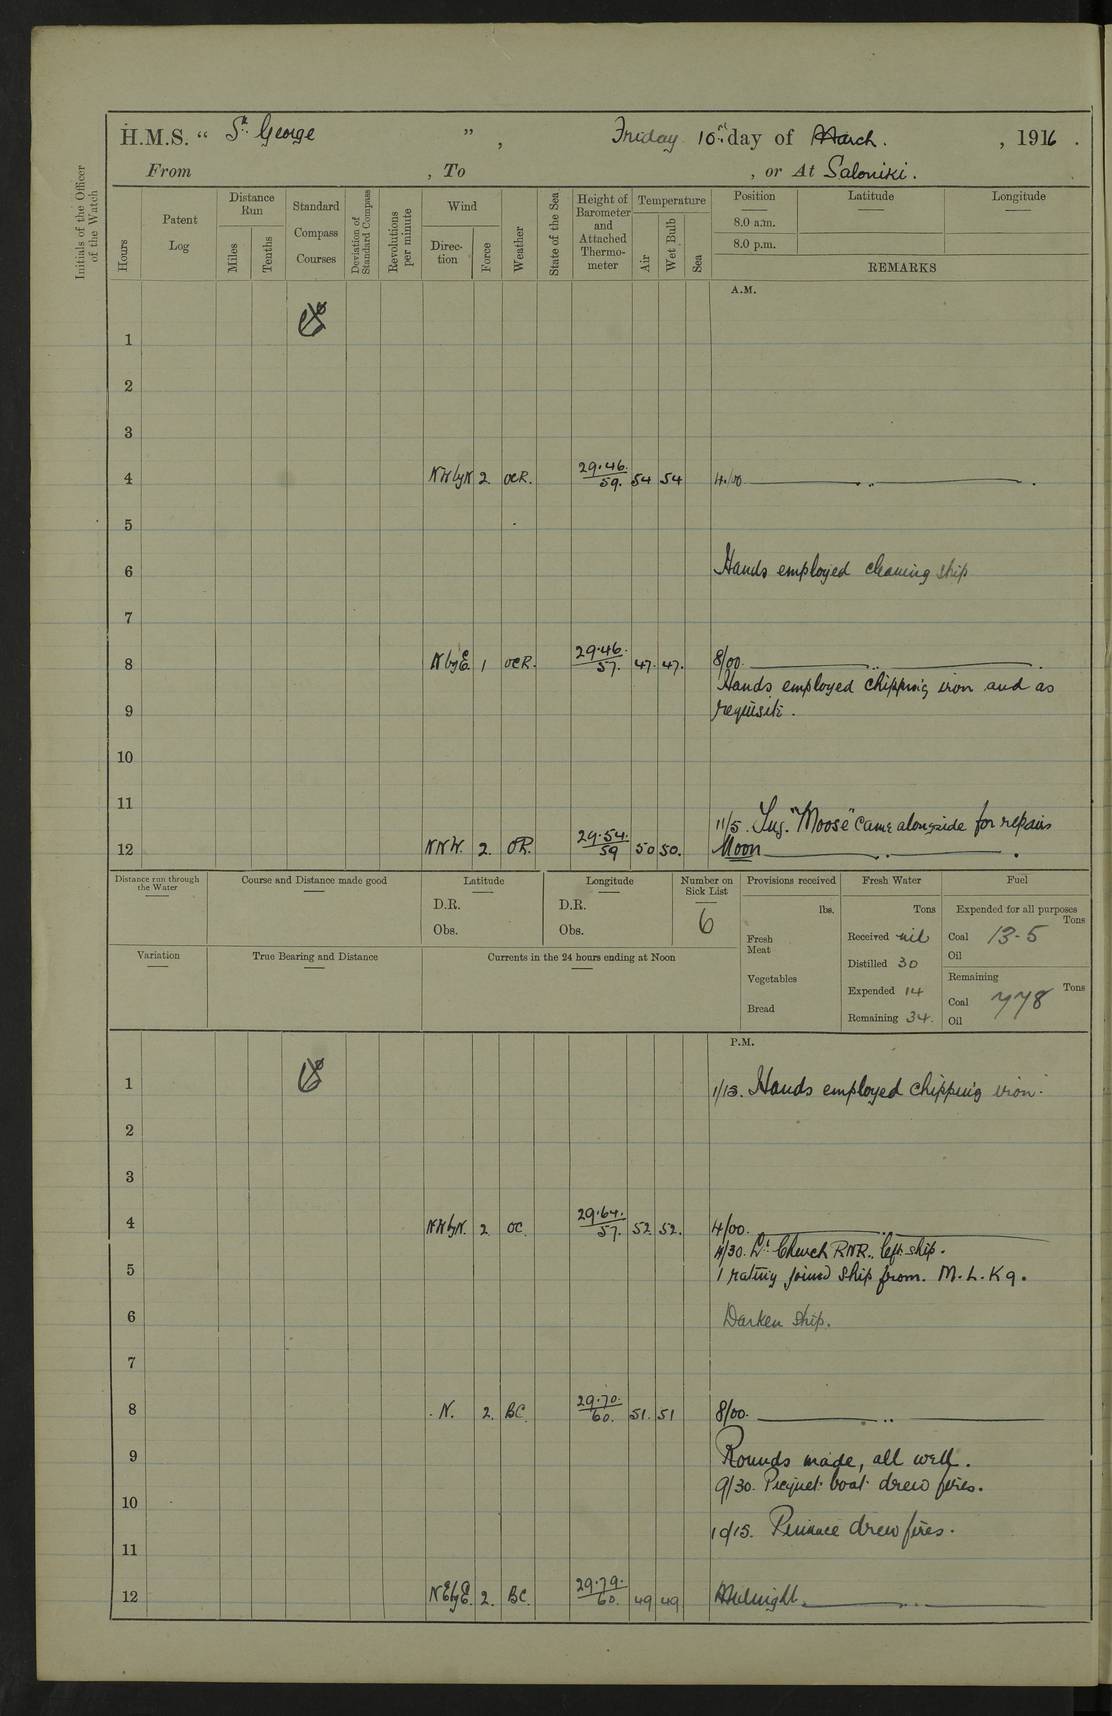 H.M.S. “ St. George ” , Friday 10th day of March. , 1916 .
From , To , or At Saloniki.
Initials of the Officer of the Watch
Hours
Patent Log
Distance Run
Miles
Tenths
Standard Compass Courses
Deviation of Standard Compass
Revolutions per minute
Wind
Direction
Force
Weather
State of the Sea
Height of Barometer and Attached Thermometer
Temperature
Air
Wet Bulb
Sea
Position Latitude Longitude
8.0 a.m.
8.0 p.m.
REMARKS
A.M.
1
2
3
4 NW by N 2. OCR. 29.46. 59. 54 54 4/00.
5
6 Hands employed cleaning ship
7
8 N by E. 1 OCR. 29.46. 57. 47. 47. 8/00.
Hands employed chipping iron and as
9 requisite.
10
11
11/5. Tug. "Moose" came alongside for repairs
12 NNW. 2. OR. 29.54. 59 50 50. Noon
Distance run through the Water
Course and Distance made good
Latitude
D.R.
Obs.
Longitude
D.R.
Obs.
Number on Sick List
6
Provisions received
lbs.
Fresh Meat
Vegetables
Bread
Fresh Water
Tons
Received nil
Distilled 30
Expended 14
Remaining 34.
Fuel
Expended for all purposes
Tons
Coal 13-5
Oil
Remaining
Tons
Coal 778
Oil
Variation
True Bearing and Distance
Currents in the 24 hours ending at Noon
P.M.
1 1/13. Hands employed chipping iron.
2
3
4 NW by N. 2 OC. 29.64. 57. 52. 52. 4/00.
4/30. Lt. Church RNR. left ship.
5 1 rating joined ship from. M.L.K9.
6 Darken ship.
7
8 N. 2. BC. 29.70. 60. 51. 51 8/00.
9 Rounds made, all well.
9/30. Picquet boat drew fires.
10
10/15. Pinnace drew fires.
11
12 NE by E. 2. BC. 29.79. 60. 49 49 Midnight.